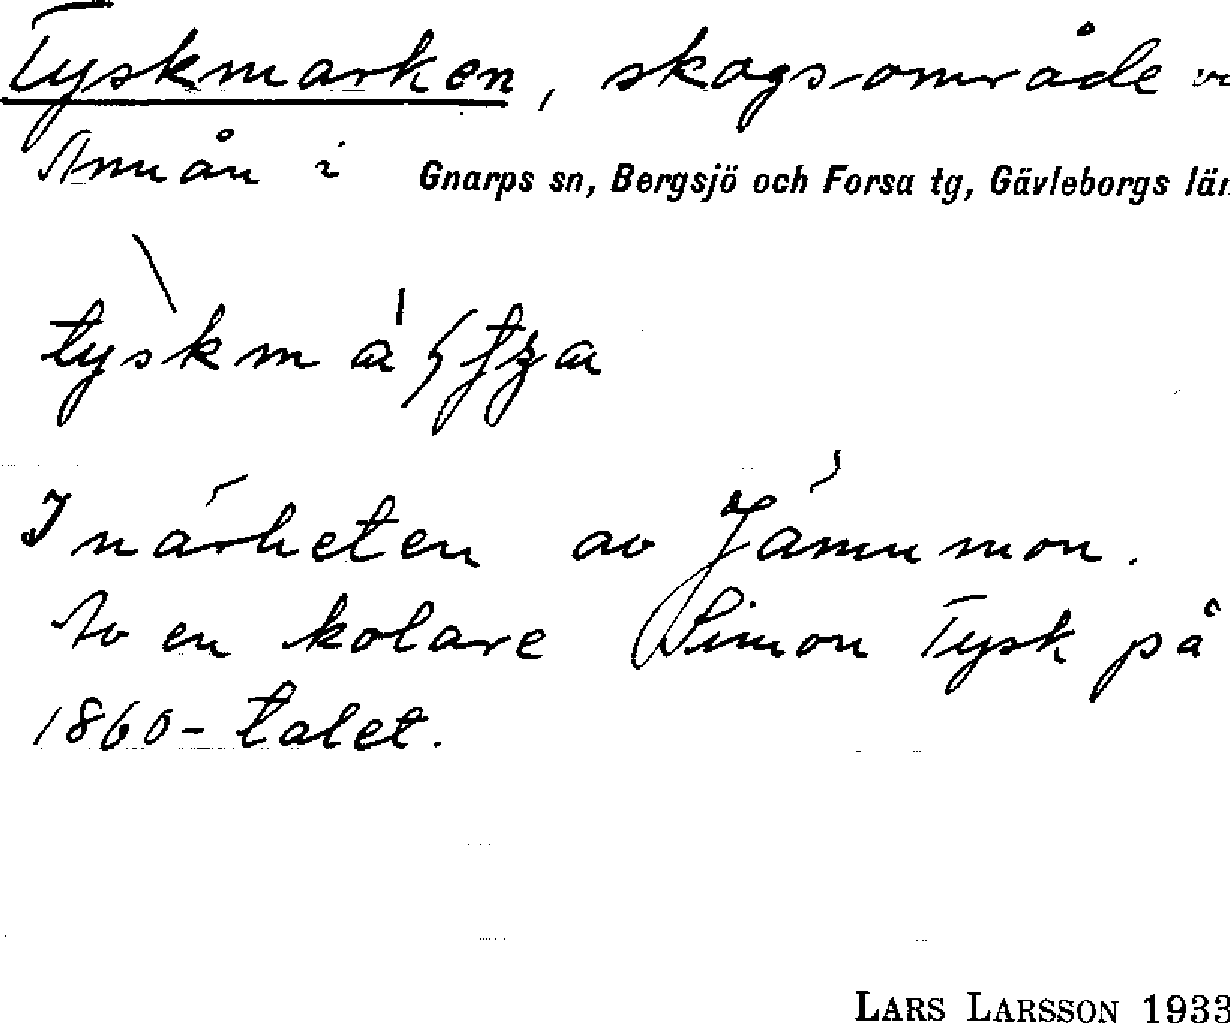 Tyskmarken, skogsområde
Annån i Gnarps sn, Bergsjö och Forsa tg, Gävleborgs län
I närheten av Jämnmon.
Av en kolare Simon Tysk på
1860-talet.
LARS LARSSON 1933